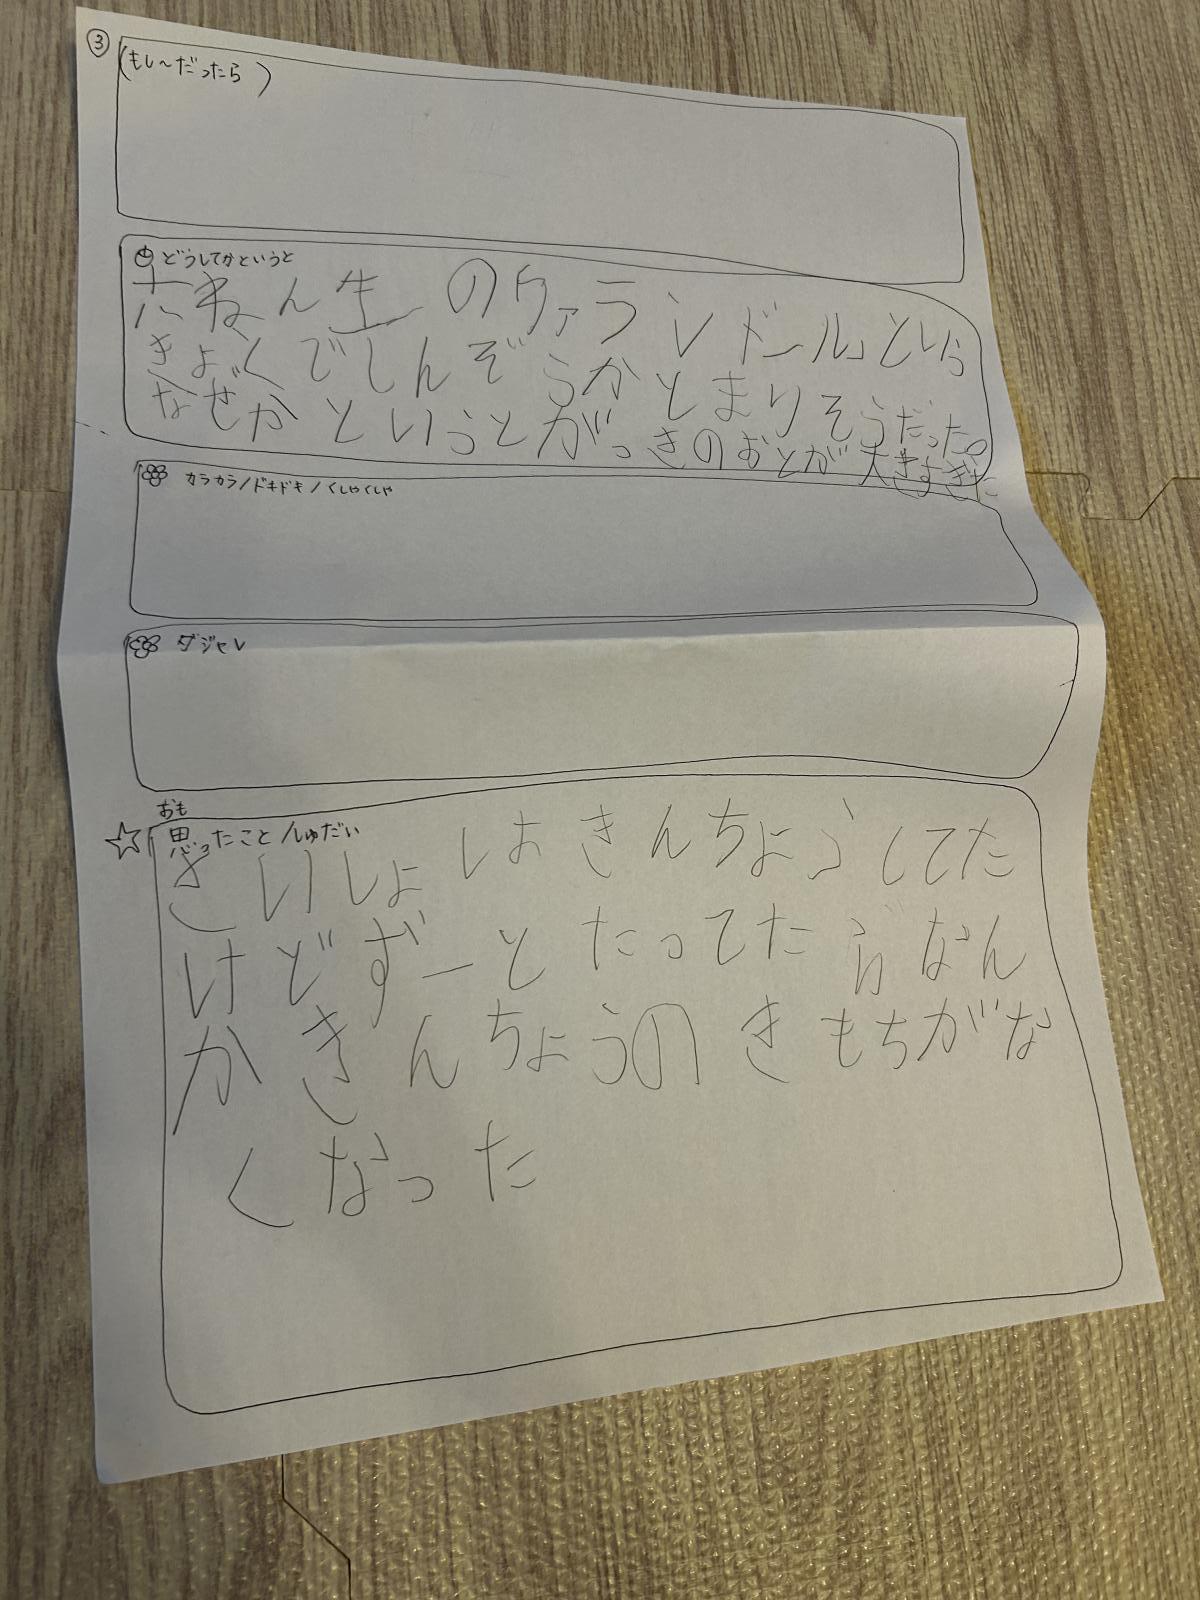 ③
(もし〜だったら )
どうしてかというと
六ねん生のヴァランドールという
きょくでしんぞうがとまりそうだった。
なぜかというとがっきのおとが大きすぎた
カラカラ/ドキドキ/くしゃくしゃ
ダジャレ
おも
思ったこと/しゅだい
さいしょはきんちょうしてた
けどずーとたってたらなん
かきんちょうのきもちがな
くなった